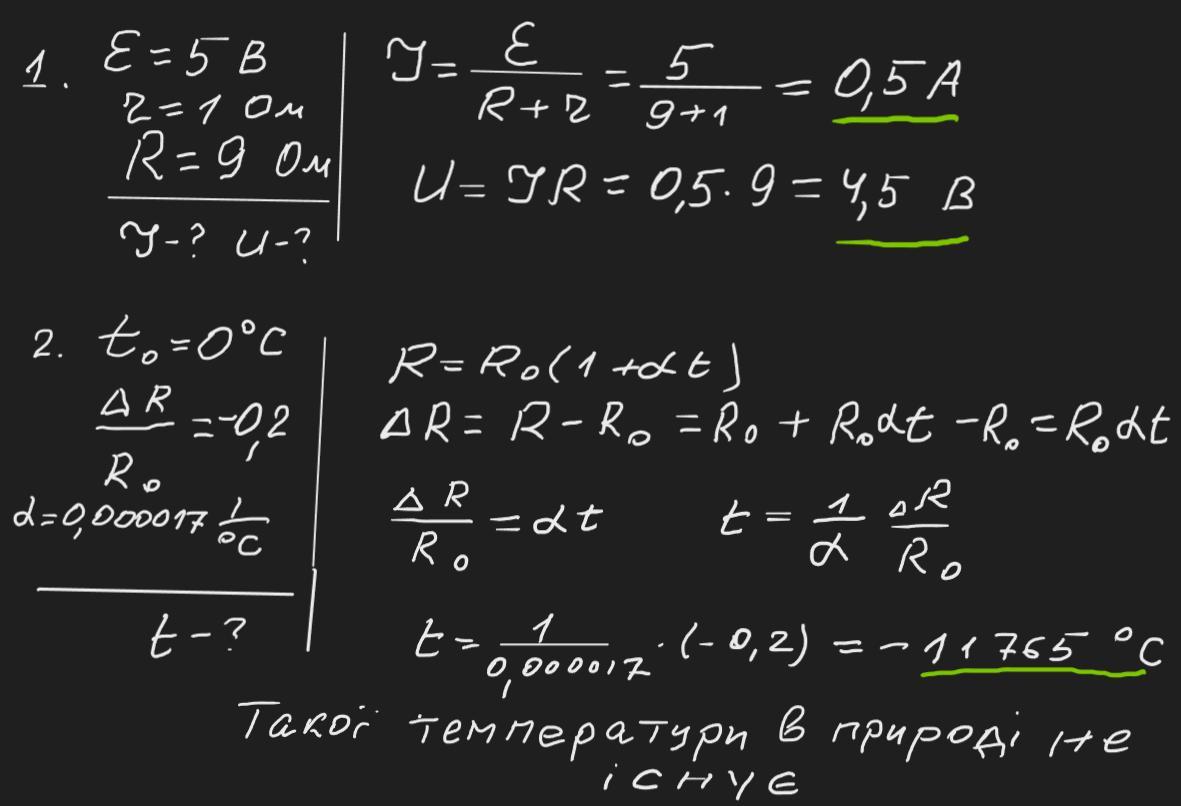 1. ℰ = 5 В
r = 1 Ом
R = 9 Ом
I - ? U - ?
I = ℰ / (R + r) = 5 / (9 + 1) = 0,5 А
U = IR = 0,5 · 9 = 4,5 В
2. t₀ = 0°C
ΔR / R₀ = -0,2
α = 0,000017 1/°C
t - ?
R = R₀(1 + αt)
ΔR = R - R₀ = R₀ + R₀αt - R₀ = R₀αt
ΔR / R₀ = αt t = 1/α ΔR/R₀
t = 1 / 0,000017 · (-0,2) = -11765 °C
Такої температури в природі не
існує